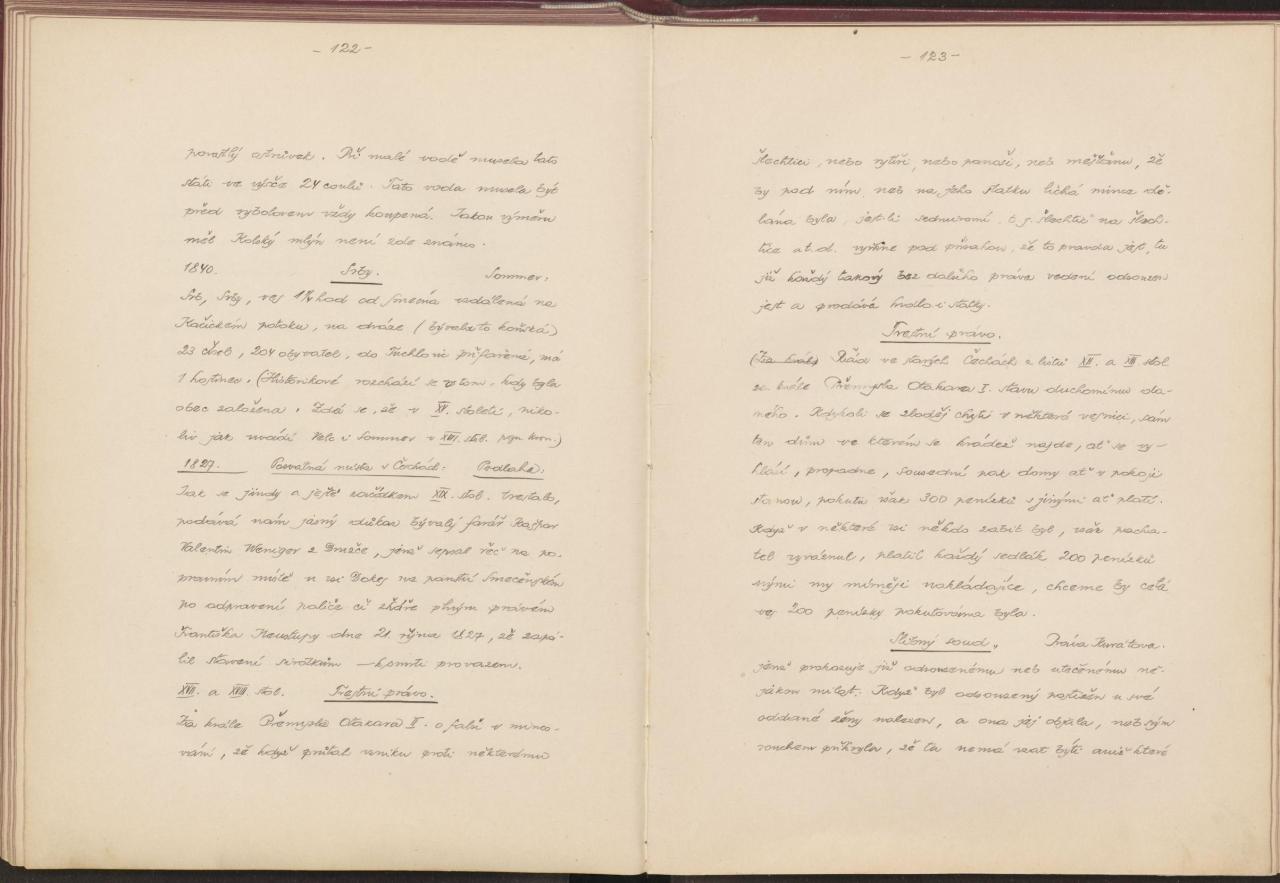 - 122 -
porostlý ostrůvek. Při malé vodě musela tato
státi ve výšce 24 coulů. Tato voda musela být
před výlovem vždy koupená. Jakou výměru
měl Kolský mlýn není zde známo.
1840. Srby. Sommer:
Srb, Srby, ves 1¼ hod od Smečna vzdálená na
Kačickém potoku, na dráze (bývala to koňská)
23 čísel, 204 obyvatel, do Tuchlovic přifařené, má
1 hostinec. (Historikové rozchází se v tom, kdy byla
obec založena. Zdá se, že v XV. století, niko-
liv jak uvádí Velc i Sommer v XIII. stol. pozn kron.)
1827. Posvátná místa v Čechách: Podlaha:
Jak se jindy a ještě začátkem XIX. stol. trestalo,
podává nám jasný důkaz bývalý farář Kašpar
Valentin Weniger z Družce, jenž sepsal řeč na po-
pravním místě u vsi Dokes na panství Smečenském
po odpravení paliče či žháře plným právem
Františka Neustupy dne 21. října 1827, že zapá-
lil stavení sirotkům — k smrti provazem.
XVII. a XVIII. stol. Trestní právo.
Za krále Přemysla Otakara II. o falši v minco-
vání, že když povstal vzniku proti některému
- 123 -
šlechtici, nebo rytíři, nebo panoši, neb mešťanu, že
by pod ním neb na jeho statku lichá mince dě-
lána byla, jest-li sedmi rovní t. j. šlechtic na šlech-
tice a t. d. vyřkne pod přísahou, že to pravda jest, tu
již každý takový bez dalšího práva vedení odsouzen
jest a prodává hrdlo i statky.
Trestní právo.
(Za krále) Řád ve starých Čechách z listů XII. a XIII stol
za krále Přemysla Otakara I. stavu duchovnímu da-
ného. Kdykoli se zloděj chytí v některé vesnici, sám
ten dům ve kterém se krádež najde, ať se vy-
klátí, propadne, sousední pak domy ať v pokoji
stanou, pokutu však 300 penízků s jinými ať platí.
Když v některé vsi někdo zabit byl, však pacha-
tel vyváznul, platil každý sedlák 200 penízků
nyní my mírněji nakládajíce, chceme by celá
ves 200 penízky pokutována byla.
Milostný soud. Práva Kurátova.
jenž prokazuje již odsouzenému neb utečenému ně-
jakou milost. Když byl odsouzený postižen u své
oddané ženy nalezen, a ona jej objala, neb svým
rouchem přikryla, že tu nemá vzat býti aniž které